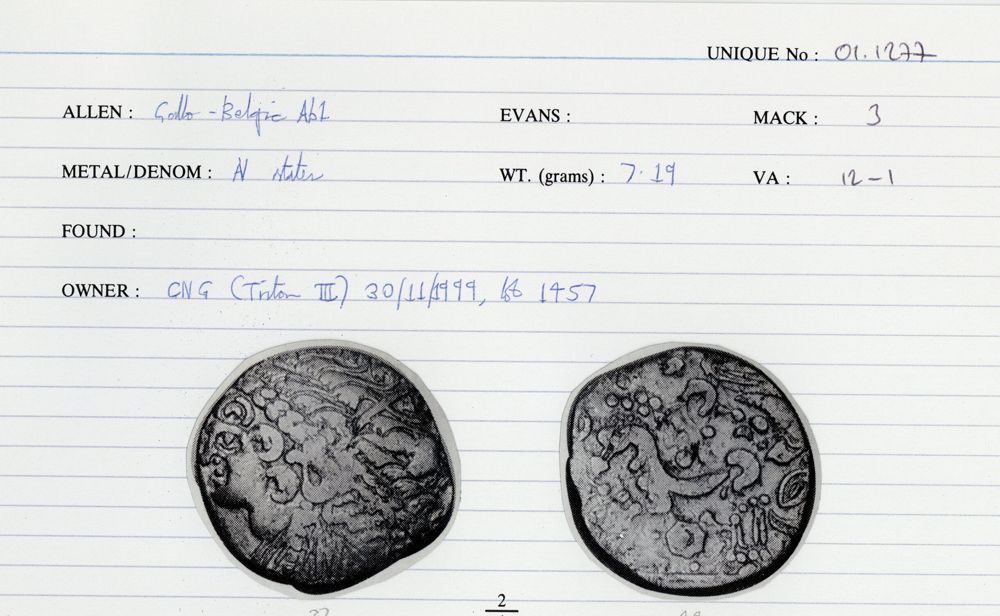 UNIQUE No : 01.1277
ALLEN : Gallo-Belgic Ab1 EVANS : MACK : 3
METAL/DENOM : AV stater WT. (grams) : 7.19 VA : 12-1
FOUND :
OWNER : CNG (Triton III) 30/11/1999, 1457
2